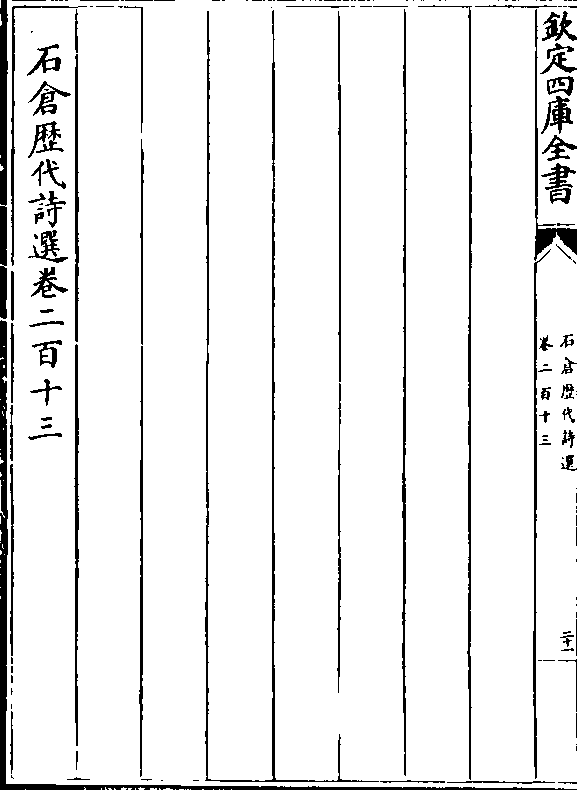 欽定四庫全書
石倉歷代詩選
卷二百十三
二十一
石倉歷代詩選卷二百十三